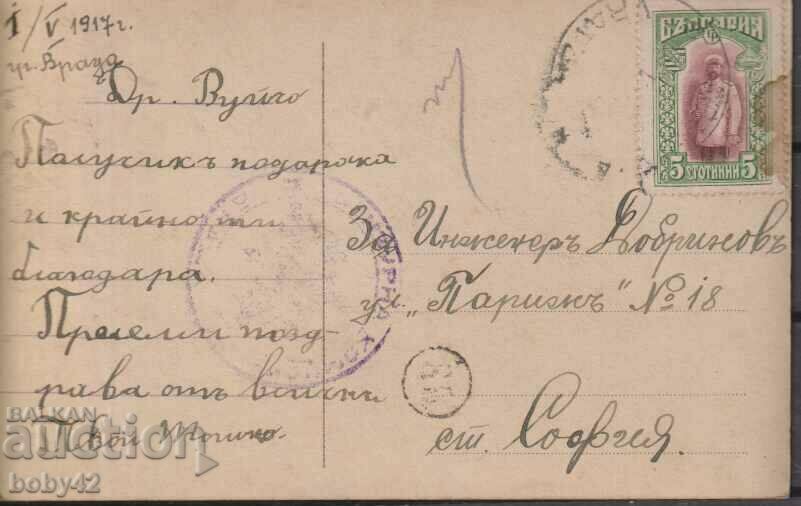 1/V 1917 г.
гр. Враца
Др. Вуйчо
Получихъ подаръка
и крайно ти
благодаря.
Приеми позд-
рава отъ всички
Твой Тошко.
БЪЛГАРИЯ
5 СТОТИНКИ 5
За Инженеръ Добриновъ
ул. „Парижъ" № 18
ст. София.
BALKAN
auction
boby42